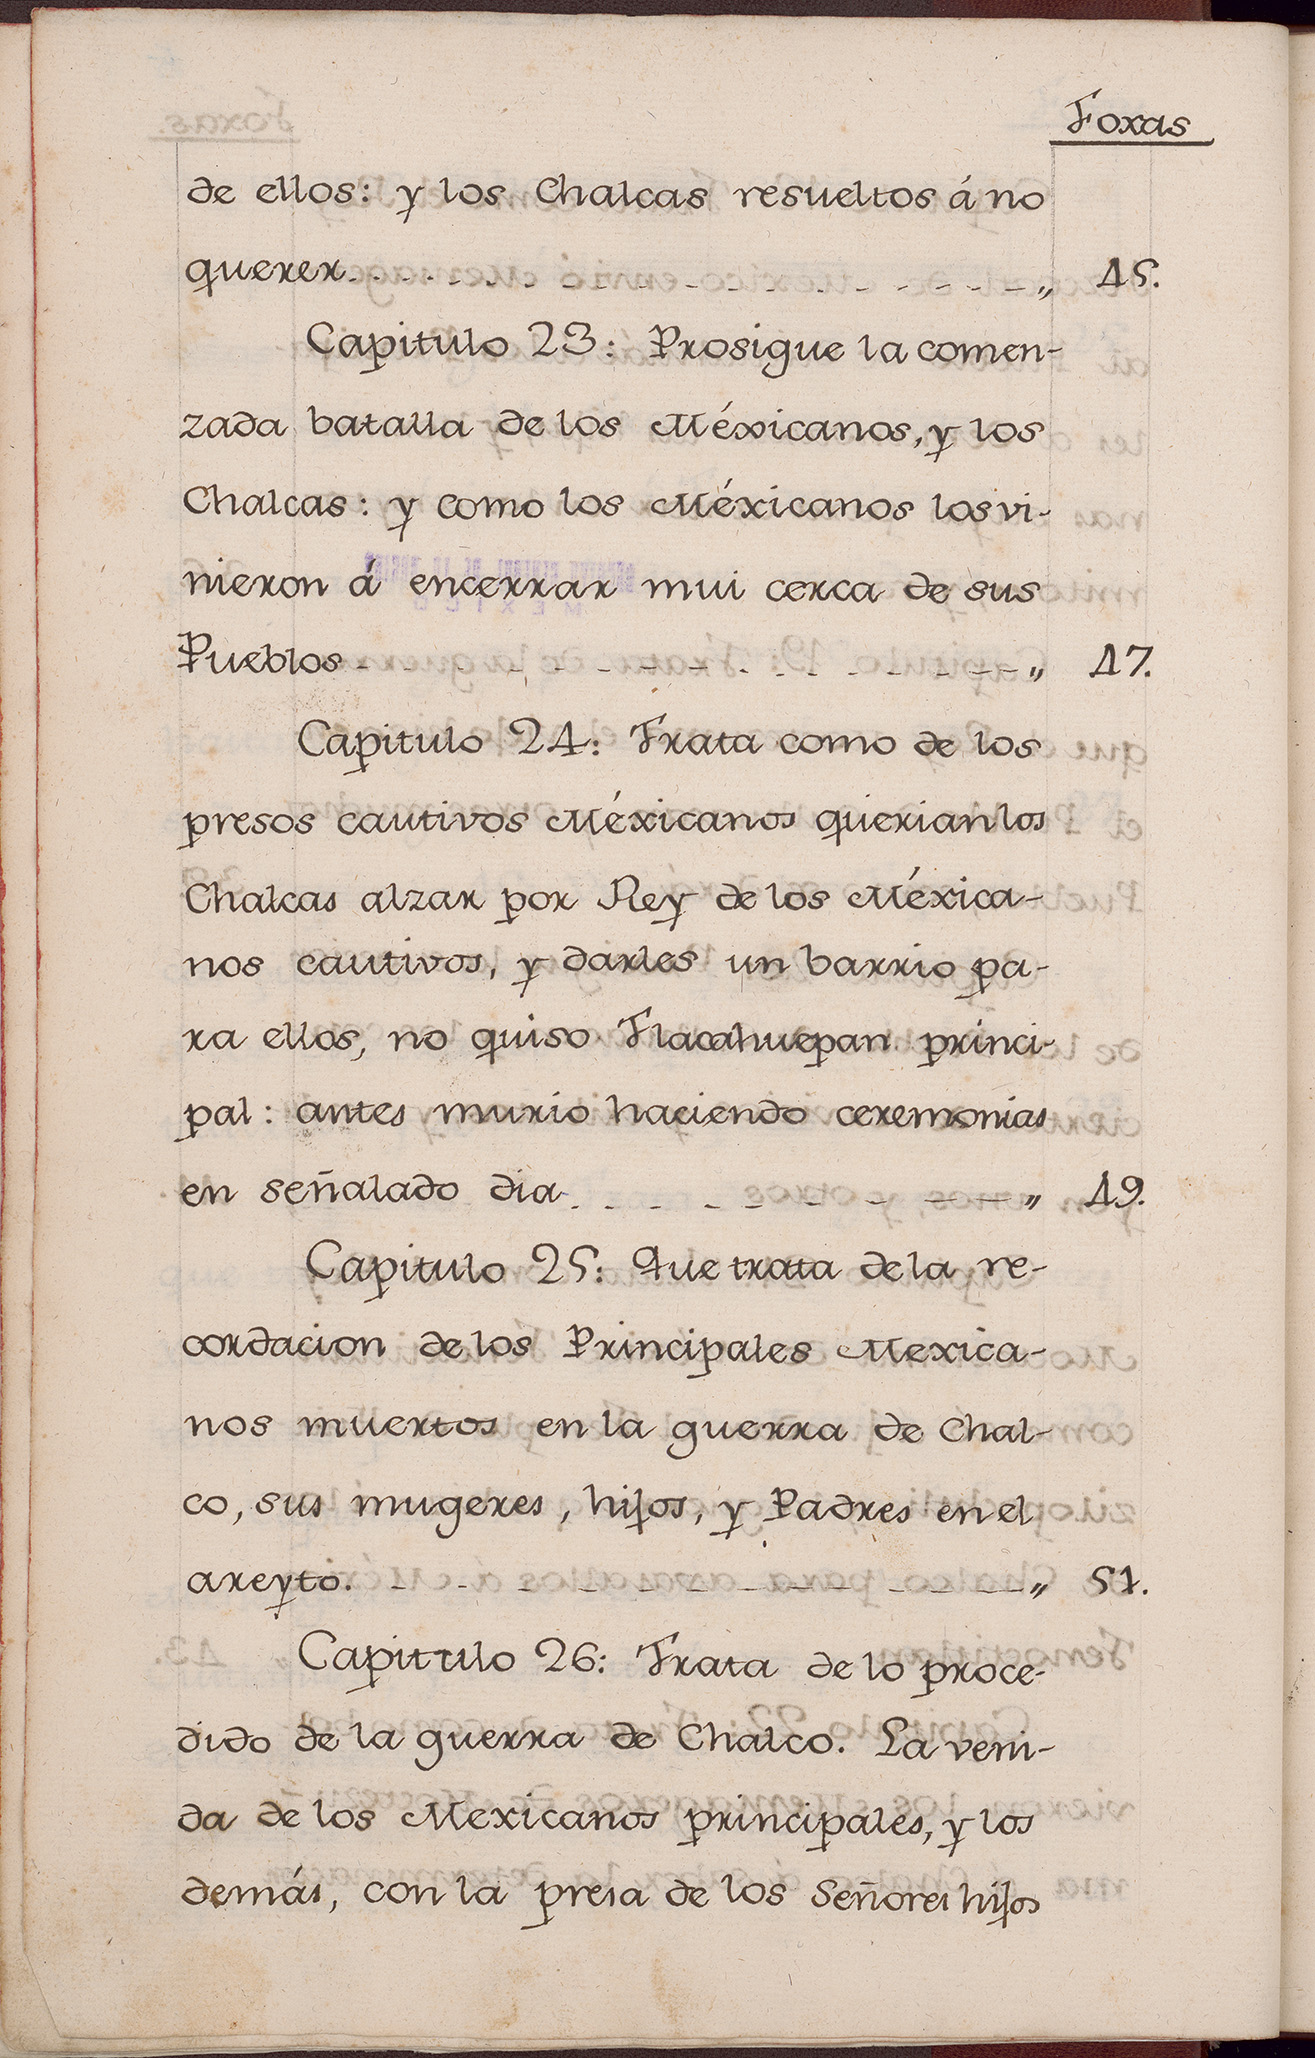 Foxas
de ellos: y los Chalcas resueltos á no
querer. . . . „ 45.
Capitulo 23: Prosigue la comen-
zada batalla de los Méxicanos, y los
Chalcas: y como los Méxicanos los vi-
nieron á encerrar mui cerca de sus
Pueblos „ 47.
Capitulo 24: Trata como de los
presos cautivos Méxicanos querian los
Chalcas alzar por Rey de los Méxica-
nos cautivos, y darles un barrio pa-
ra ellos, no quiso Tlacahuepan princi-
pal: antes murio haciendo ceremonias
en señalado dia „ 49.
Capitulo 25: Que trata de la re-
cordacion de los Principales Mexica-
nos muertos en la guerra de Chal-
co, sus mugeres, hijos, y Padres en el
areyto. „ 51.
Capitulo 26: Trata de lo proce-
dido de la guerra de Chalco. La veni-
da de los Mexicanos principales, y los
demás, con la presa de los Señores hijos